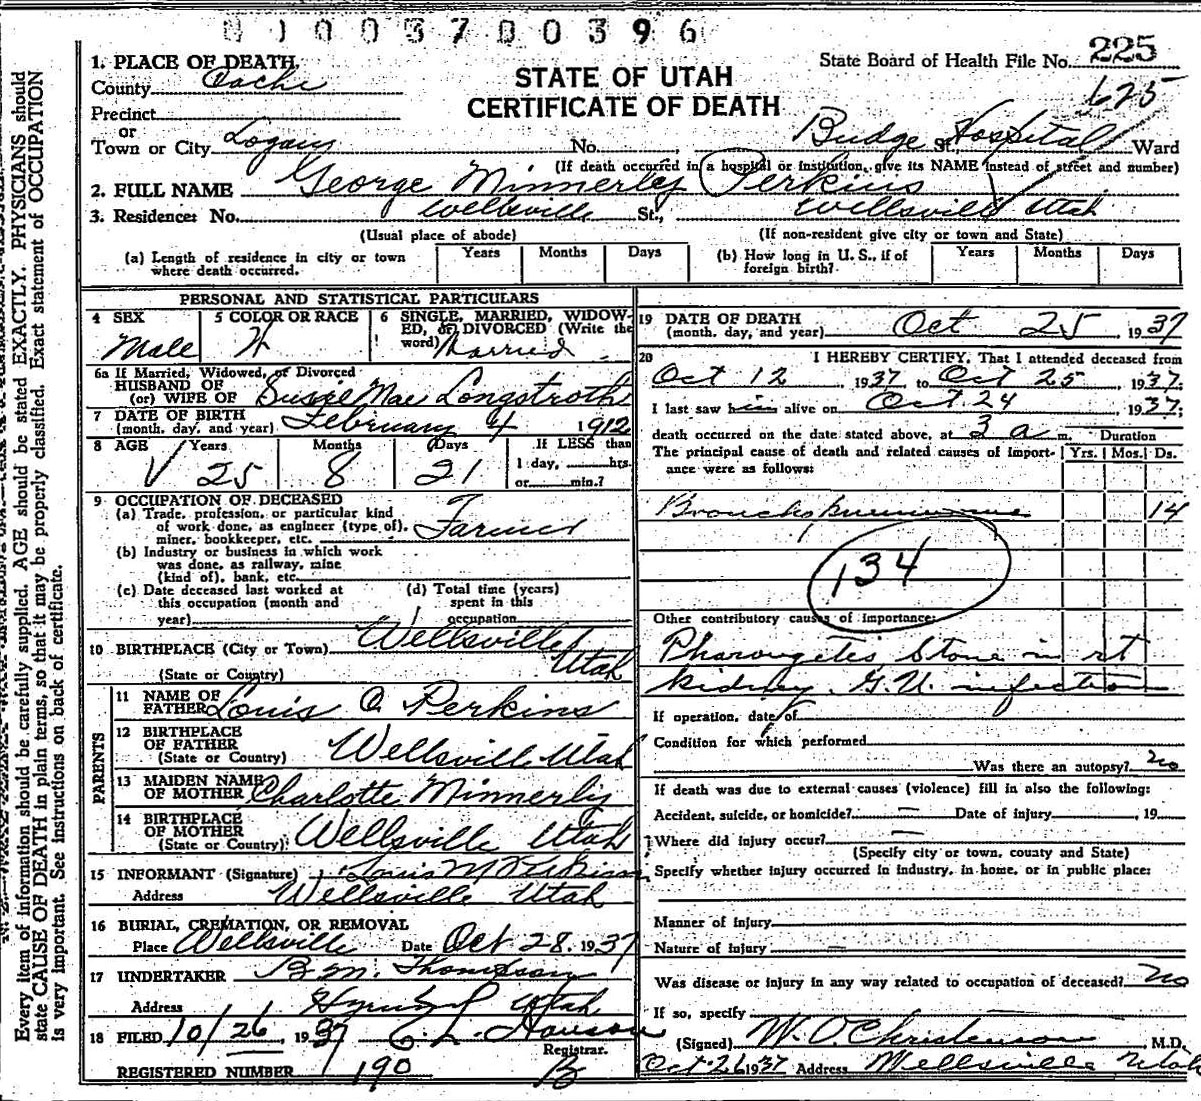 01003700396
State Board of Health File No. 225
625
STATE OF UTAH
CERTIFICATE OF DEATH
1. PLACE OF DEATH,
County Cache
Precinct
or
Town or City Logan No. , Budge Hospital St. Ward
(If death occurred in a hospital or institution, give its NAME instead of street and number)
2. FULL NAME George Minnerly Perkins
3. Residence: No. Wellsville St., Wellsville Utah
(Usual place of abode) (If non-resident give city or town and State)
(a) Length of residence in city or town where death occurred. Years Months Days
(b) How long in U. S., if of foreign birth? Years Months Days
PERSONAL AND STATISTICAL PARTICULARS
4 SEX Male
5 COLOR OR RACE W
6 SINGLE, MARRIED, WIDOWED, or DIVORCED (Write the word) Married
6a If Married, Widowed, or Divorced
HUSBAND OF
(or) WIFE OF Susie Mae Longstroth
7 DATE OF BIRTH
(month, day, and year) February 4 1912
8 AGE Years 25 Months 8 Days 21
If LESS than 1 day, hrs. or min.?
9 OCCUPATION OF DECEASED
(a) Trade, profession, or particular kind
of work done, as engineer (type of),
miner, bookkeeper, etc. Farmer
(b) Industry or business in which work
was done, as railway, mine
(kind of), bank, etc.
(c) Date deceased last worked at
this occupation (month and
year)
(d) Total time (years)
spent in this
occupation
10 BIRTHPLACE (City or Town) Wellsville
(State or Country) Utah
PARENTS
11 NAME OF
FATHER Louis A Perkins
12 BIRTHPLACE
OF FATHER
(State or Country) Wellsville Utah
13 MAIDEN NAME
OF MOTHER Charlotte Minnerly
14 BIRTHPLACE
OF MOTHER
(State or Country) Wellsville Utah
15 INFORMANT (Signature) Louis M Perkins
Address Wellsville Utah
16 BURIAL, CREMATION, OR REMOVAL
Place Wellsville Date Oct 28. 1937
17 UNDERTAKER B. M. Thompson
Address Hyrum Utah
18 FILED 10/26 1937 C. L. Hanson
Registrar.
REGISTERED NUMBER 190
19 DATE OF DEATH
(month, day, and year) Oct 25 1937
20 I HEREBY CERTIFY, That I attended deceased from
Oct 12, 1937 to Oct 25 1937;
I last saw him alive on Oct. 24 1937;
death occurred on the date stated above, at 3 a m. Duration
The principal cause of death and related causes of importance were as follows: Yrs. Mos. Ds.
Broncho pneumonia 14
134
Other contributory causes of importance:
Pharongetes Stone in rt
kidney. G. U. infection
If operation, date of
Condition for which performed
Was there an autopsy? no
If death was due to external causes (violence) fill in also the following:
Accident, suicide, or homicide? — Date of injury , 19
Where did injury occur? —
(Specify city or town, county and State)
Specify whether injury occurred in industry, in home, or in public place:
Manner of injury
Nature of injury —
Was disease or injury in any way related to occupation of deceased? no
If so, specify
(Signed) W. O. Christenson M.D.
Oct. 26 1937 Address Wellsville Utah
Every item of information should be carefully supplied. AGE should be stated EXACTLY. PHYSICIANS should
state CAUSE OF DEATH in plain terms, so that it may be properly classified. Exact statement of OCCUPATION
is very important. See instructions on back of certificate.